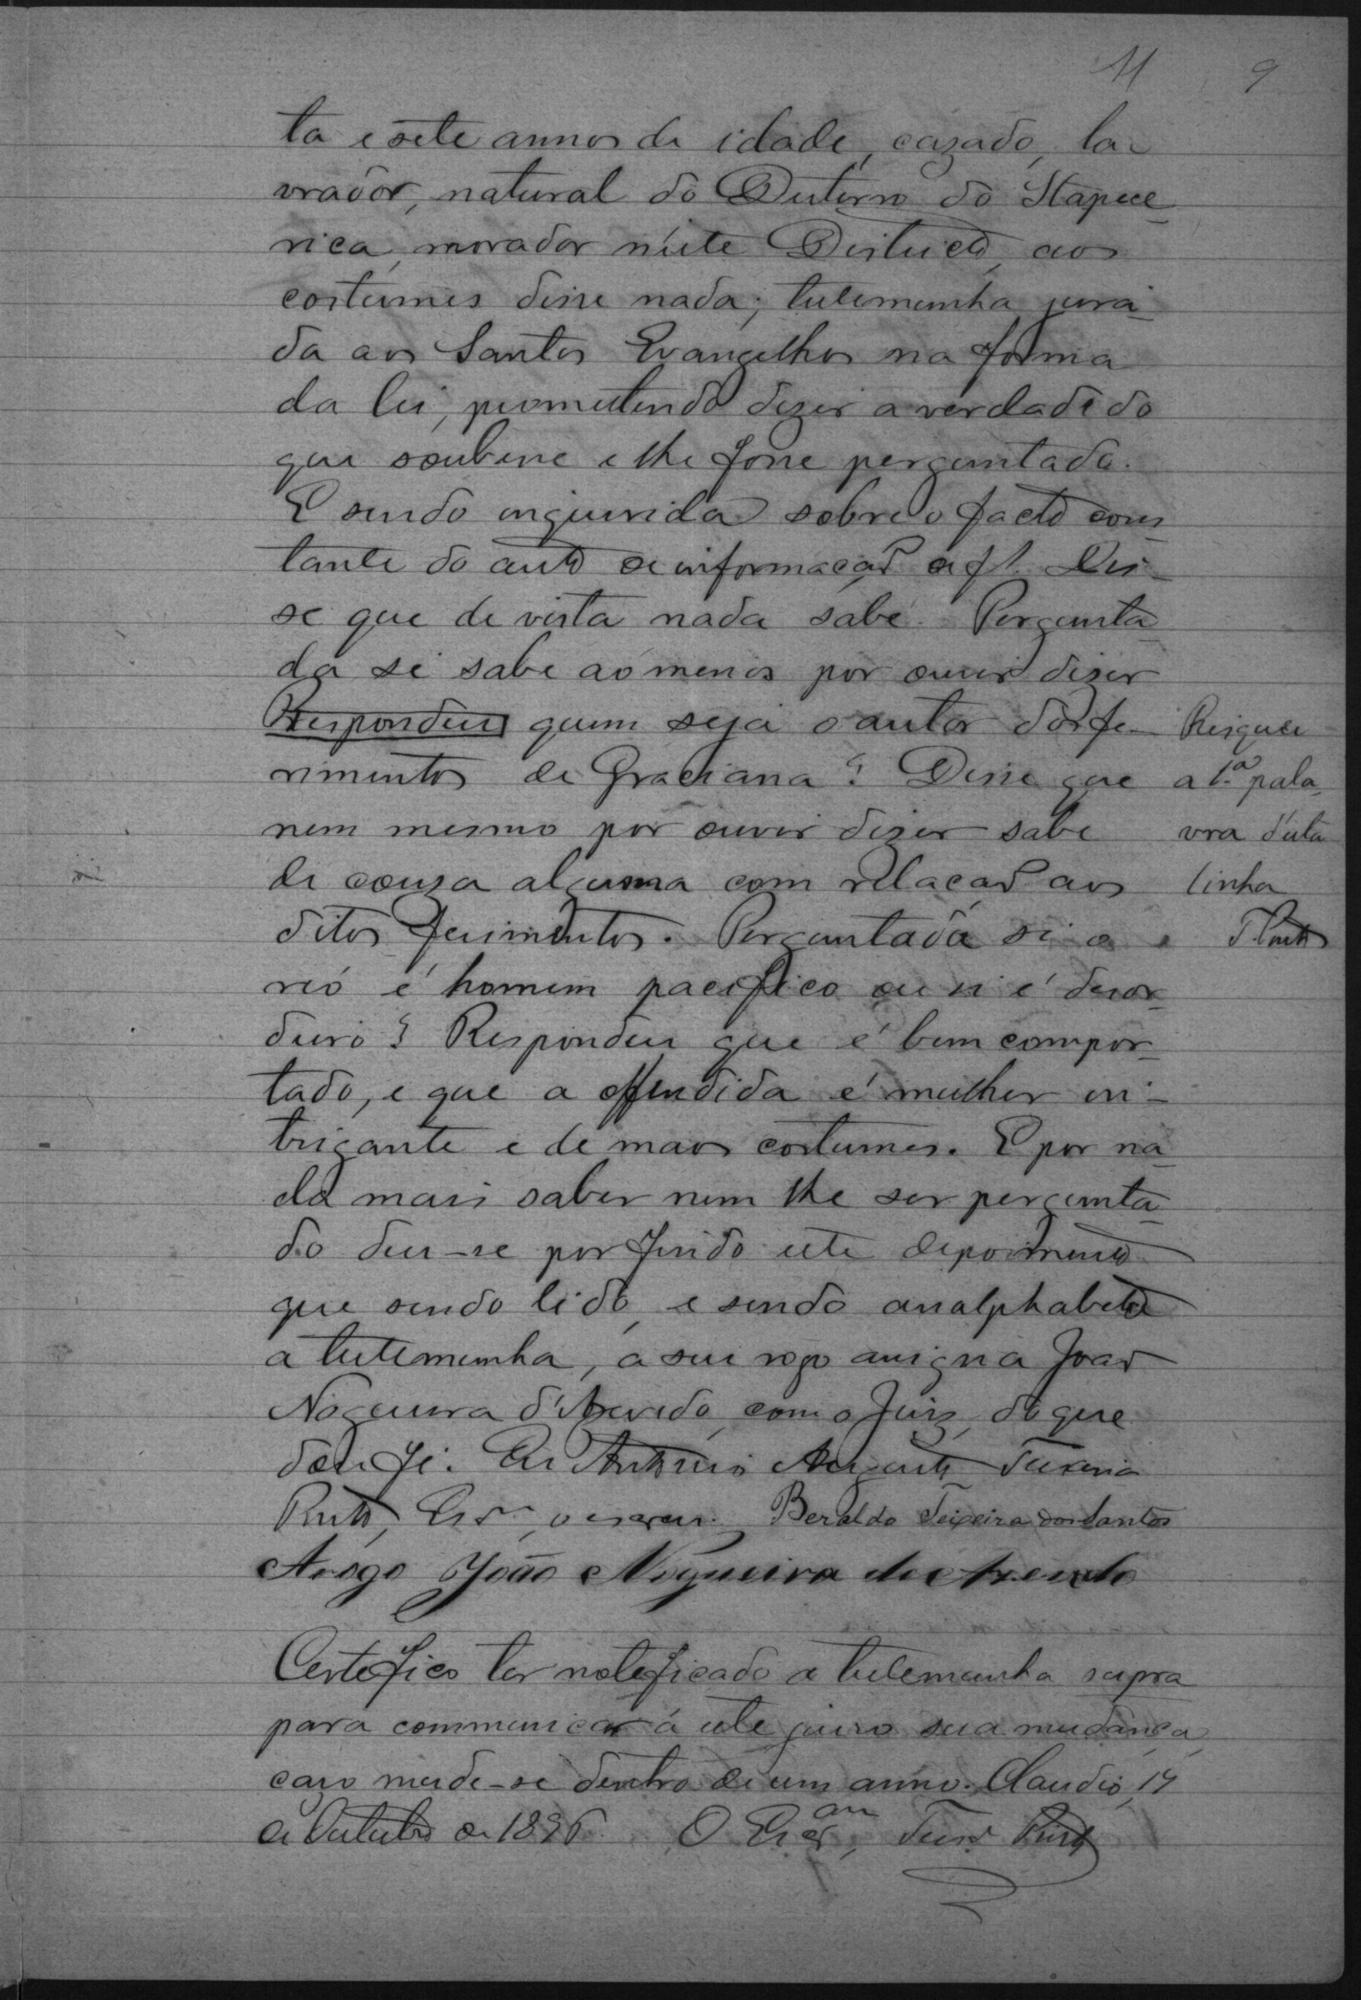 11 9
ta e sete annos de idade, cazado, la-
vrador, natural do Desterro do Itapece-
rica, morador n'este Districto, aos
costumes disse nada; testemunha jura-
da aos Santos Evangelhos na forma
da lei, promettendo dizer a verdade do
que soubesse e lhe fosse perguntado.
E sendo inquirida sobre o facto cons-
tante do auto de informação a fl. Dis-
se que de vista nada sabe. Pergunta-
da si sabe ao menos por ouvir dizer
Respondeu quem seja o autor dos fe-
rimentos de Graciana? Disse que
nem mesmo por ouvir dizer sabe
de couza alguma com relação aos
ditos ferimentos. Perguntada si o
reó é homem pacifico ou si é desor-
deiro? Respondeu que é bem compor-
tado, e que a offendida é mulher in-
trigante e de maos costumes. E por na-
da mais saber nem lhe ser pergunta-
do deu-se por findo este depoimento
que sendo lido, e sendo analphabeta
a testemunha, a seu rogo assigna João
Nogueira d'Azevedo, com o Juiz, do que
dou fé. Eu Antonio Augusto Teixeira
Escr.m o escrevi. Beraldo Teixeira dos Santos
Arogo João Nogueira de Azevedo
Risquei
a 1.ª pala-
vra d'esta
linha
Certefico ter noteficado a testemunha supra
para communicar á este juizo sua mudança,
cazo mude-se dentro de um anno. Claudio, 14
de Outubro de 1896. O Escr.am,